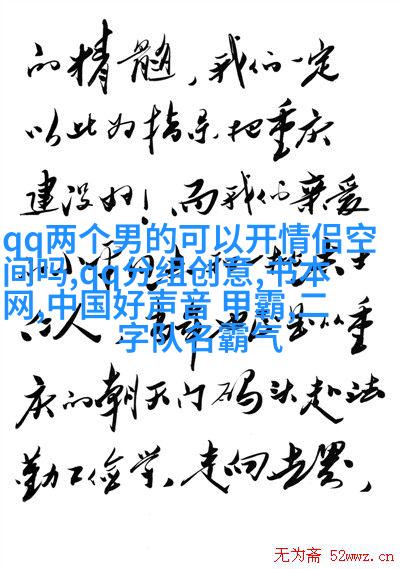 的精髓,我们一定
以此为指导把重庆
建设好!而我们亲爱
qq两个男的可以开情侣空
间吗,qq分组创意,书本
网,中国好声音 甲霸,二
字队名霸气
的人,
从重
庆的朝天门码头赴法
勤工俭学,走向世界,
无为斋 52wwz.cn